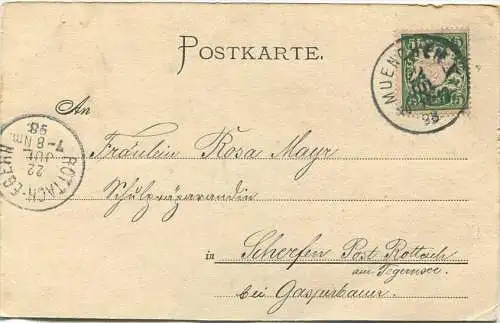 POSTKARTE.
MUENCHEN
98
An
Fräulein Rosa Mayr
Schulpräparandin
in Scherfen Post Rottach
am Tegernsee.
bei Gasperbauer.
ROTTACH-EGERN
22
JUL
7-8 Nm.
98